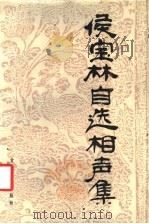 侯宝林自选相声集